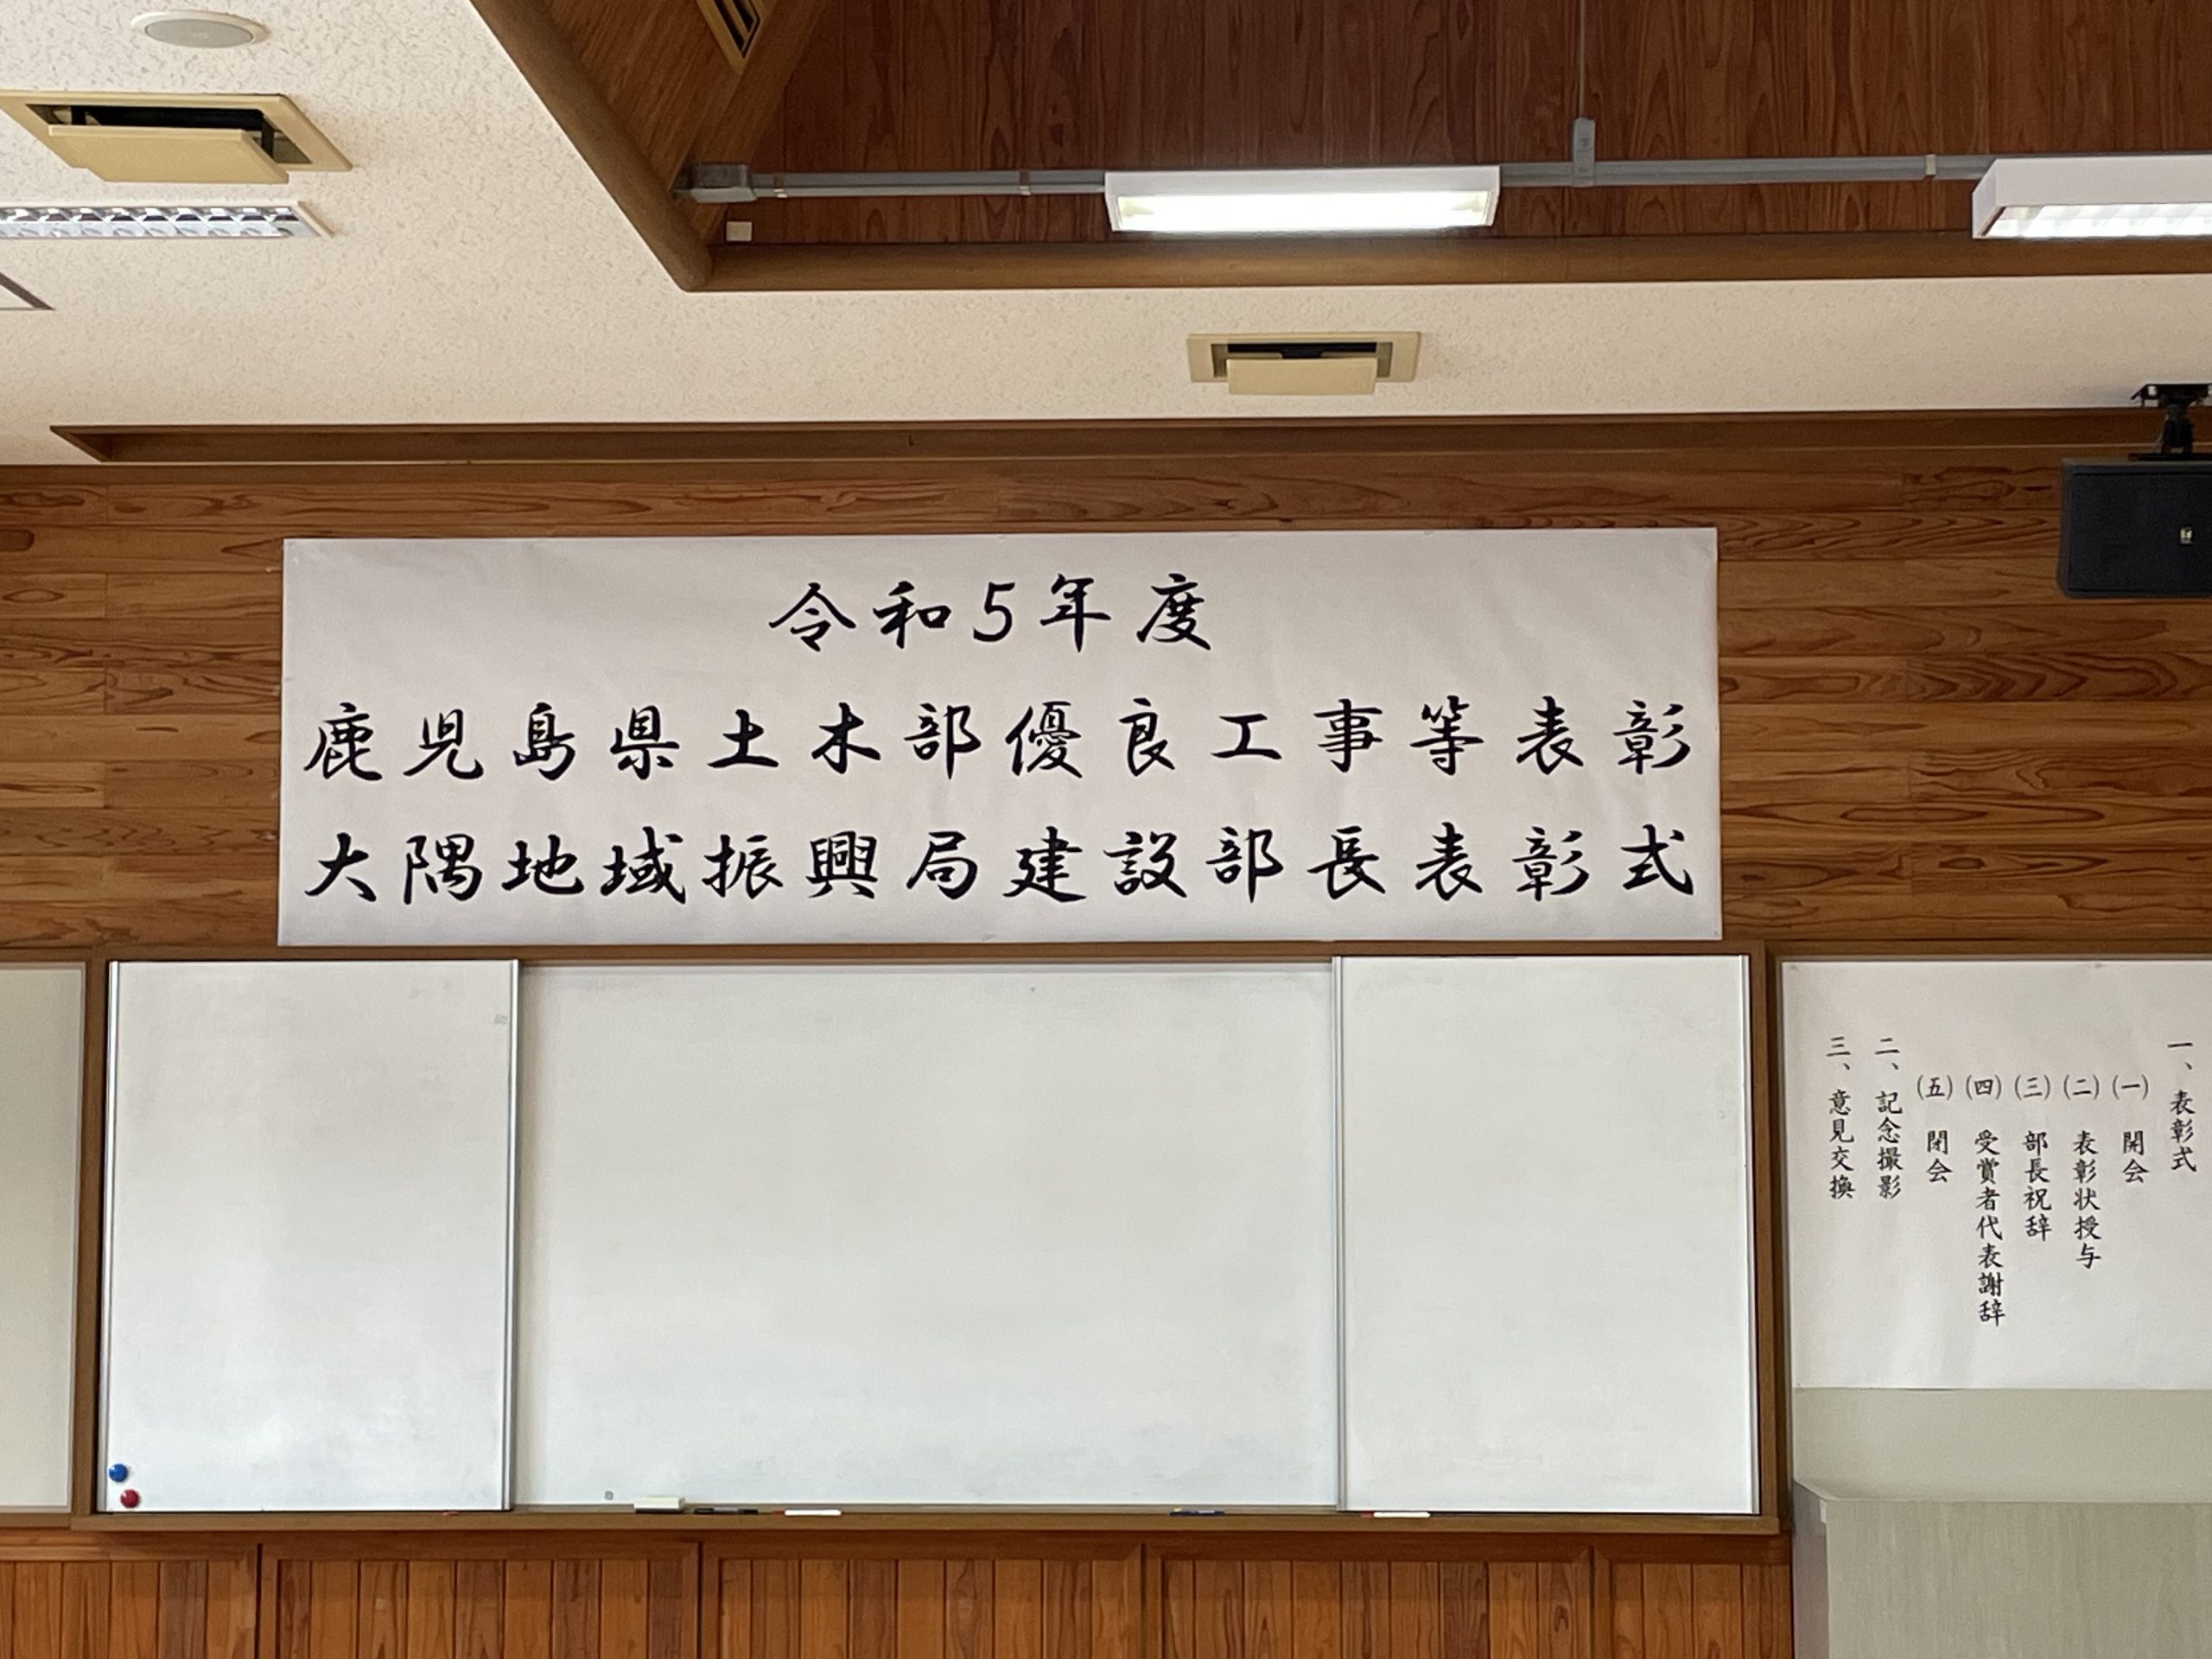 令和5年度
鹿児島県土木部優良工事等表彰
大隅地域振興局建設部長表彰式
一、表彰式
(一) 開会
(二) 表彰状授与
(三) 部長祝辞
(四) 受賞者代表謝辞
(五) 閉会
二、記念撮影
三、意見交換